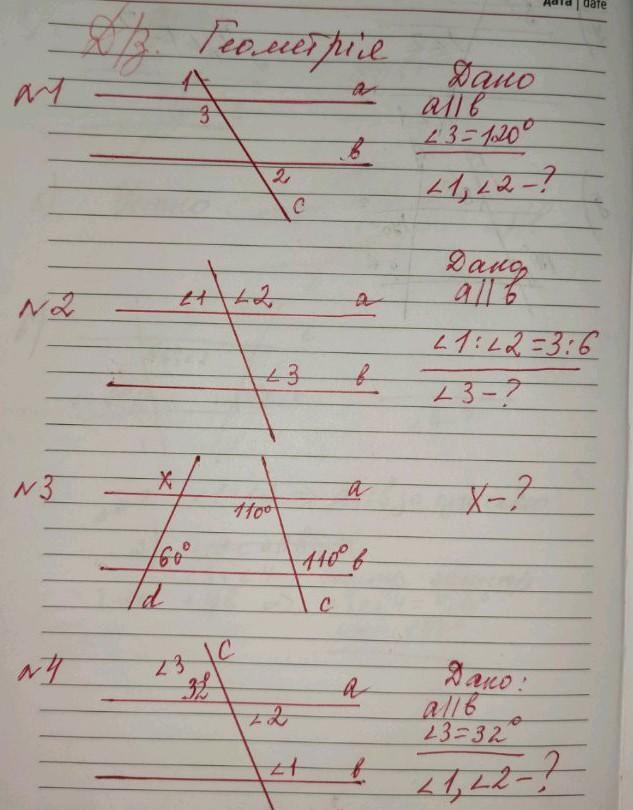 дата | date
Д/з. Геометрія
№1
1
a
3
b
2
c
Дано
a||b
∠3=120°
∠1, ∠2-?
№2
∠1 ∠2 a
∠3 b
Дано
a||b
∠1:∠2=3:6
∠3-?
№3
x a
110°
60° 110° b
d c
X-?
№4
c
∠3
32° a
∠2
∠1 b
Дано:
a||b
∠3=32°
∠1, ∠2-?